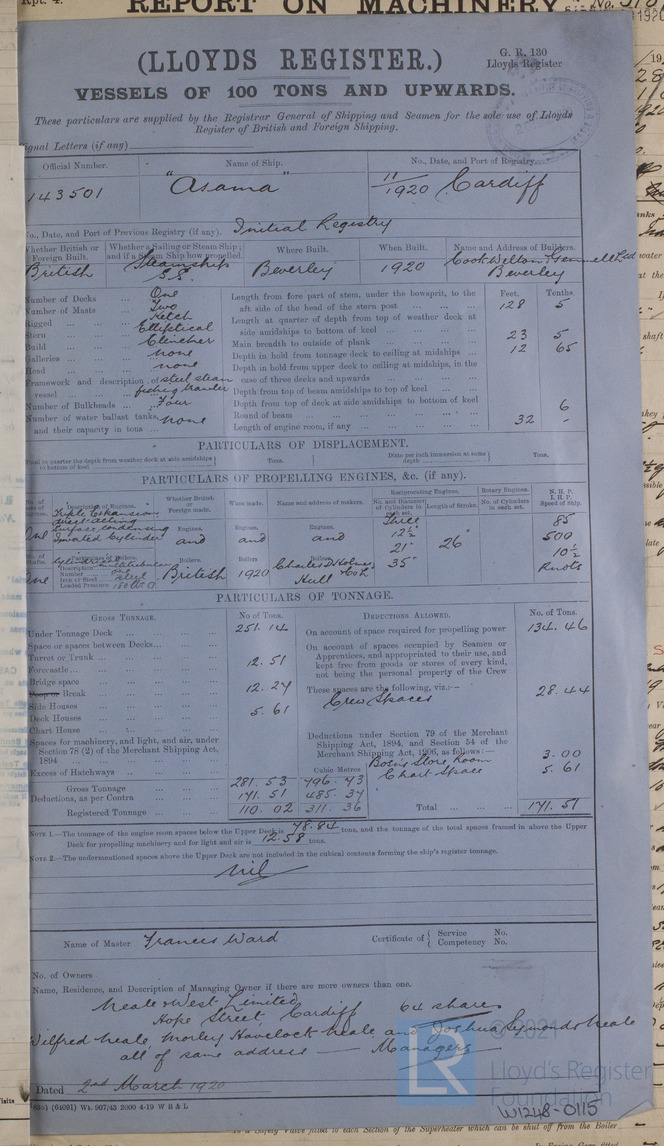 Rpt. 4.
REPORT ON MACHINERY
(LLOYDS REGISTER.)
G. R. 130
Lloyds Register
VESSELS OF 100 TONS AND UPWARDS.
These particulars are supplied by the Registrar General of Shipping and Seamen for the sole use of Lloyds
Register of British and Foreign Shipping.
Signal Letters (if any)
Official Number. Name of Ship. No., Date, and Port of Registry.
143501 "Asama" 11/1920 Cardiff
No., Date, and Port of Previous Registry (if any). Initial Registry
Whether British or Foreign Built. Whether a Sailing or Steam Ship; and if a Steam Ship how propelled. Where Built. When Built. Name and Address of Builders.
British Steamship S.S. Beverley 1920 Cook Welton & Gemmell Ltd Beverley
Number of Decks ... One
Number of Masts ... Two
Rigged ... Ketch
Stern ... Elliptical
Build ... Clencher
Galleries ... none
Head ... none
Framework and description of vessel ... steel steam fishing trawler
Number of Bulkheads ... Four
Number of water ballast tanks, and their capacity in tons ... none
Feet. Tenths.
Length from fore part of stem, under the bowsprit, to the aft side of the head of the stern post 128 5
Length at quarter of depth from top of weather deck at side amidships to bottom of keel
Main breadth to outside of plank 23 5
Depth in hold from tonnage deck to ceiling at midships 12 65
Depth in hold from upper deck to ceiling at midships, in the case of three decks and upwards
Depth from top of beam amidships to top of keel
Depth from top of deck at side amidships to bottom of keel
Round of beam 6
Length of engine room, if any 32 -
PARTICULARS OF DISPLACEMENT.
Total to quarter the depth from weather deck at side amidships to bottom of keel Tons. Ditto per inch immersion at same depth Tons.
PARTICULARS OF PROPELLING ENGINES, &c. (if any).
No. of Engines. Description of Engines. Whether British or Foreign made. When made. Name and address of makers. Reciprocating Engines. No. and Diameter of Cylinders in each set. Length of Stroke. Rotary Engines. No. of Cylinders in each set. N. H. P. I. H. P. Speed of Ship.
One Triple Expansion direct acting Surface condensing Inverted Cylinder
Engines. and Engines. and Engines. and
Three 12½" 21" 35" 26" 85 500 10½ Knots
No. of Shafts. Particulars of Boilers. Description Number Iron or Steel Loaded Pressure
One Cylindrical multitubular one steel
Boilers. British Boilers 1920 Boilers. Charles D Holmes & Co Ld Hull
PARTICULARS OF TONNAGE.
GROSS TONNAGE. No of Tons. DEDUCTIONS ALLOWED. No. of Tons.
Under Tonnage Deck 251.14
Space or spaces between Decks
Turret or Trunk
Forecastle 12.51
Bridge space
Poop or Break 12.27
Side Houses
Deck Houses 5.61
Chart House
Spaces for machinery, and light, and air, under Section 78 (2) of the Merchant Shipping Act, 1894
Excess of Hatchways
On account of space required for propelling power 134.46
On account of spaces occupied by Seamen or Apprentices, and appropriated to their use, and kept free from goods or stores of every kind, not being the personal property of the Crew
These spaces are the following, viz.:— 28.44
Crew Spaces
Deductions under Section 79 of the Merchant Shipping Act, 1894, and Section 54 of the Merchant Shipping Act, 1906, as follows:—
Bosn's Store Room 3.00
Chart Space 5.61
Cubic Metres
Gross Tonnage 281.53 796.73
Deductions, as per Contra 171.51 485.37
Registered Tonnage 110.02 311.36
Total 171.51
NOTE 1.—The tonnage of the engine room spaces below the Upper Deck is 78.84 tons, and the tonnage of the total spaces framed in above the Upper
Deck for propelling machinery and for light and air is 12.58 tons.
NOTE 2.—The undermentioned spaces above the Upper Deck are not included in the cubical contents forming the ship's register tonnage.
nil
Name of Master Frances Ward Certificate of { Service No. Competency No.
No. of Owners
Name, Residence, and Description of Managing Owner if there are more owners than one.
Neale & West Limited
Hope Street Cardiff 64 shares
Wilfred Neale, Morley Havelock Neale, and Joshua Symonds Neale
all of same address — Managers
Dated 2nd March 1920
(64091) Wt. 907/43 2000 4-19 W B & L
© 2021
Lloyd's Register
Foundation
LR
W1248-0115
is a Safety Valve fitted to each Section of the Superheater which can be shut off from the Boiler